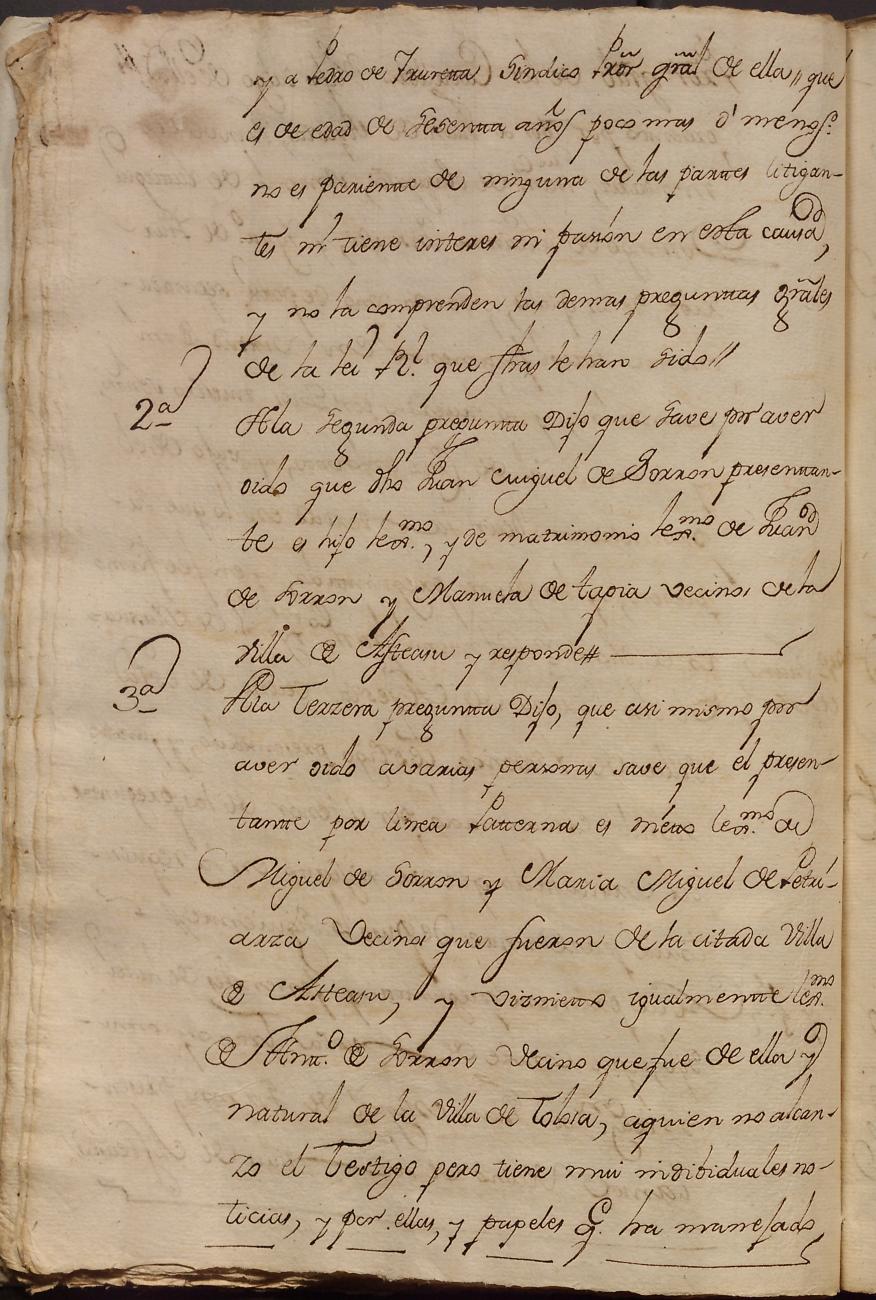 y a Pedro de Iruretta Sindico Pror gral de ella, que
es de edad de sesentta años poco mas o' menos:
no es parientte de ninguna de las parttes litigan-
tes ni tiene interes ni pasion en esta causa,
y no la comprenden las demas preguntas grales
de la lei Rl. que se le han sido//
2a Ala segunda pregunta Dijo que save por aver
oido que dho Juan Miguel de Sorron presenttan-
te es hijo lexmo., y de matrimonio lexmo. de Juan
de Sorron y Manuela de tapia vecinos de la
villa de Asteasu y responde//
3a Ala Terzera pregunta Dijo, que asi mismo por
aver oido a varias personas save que el presen-
tantte por linea Patterna es nietto lexmo. de
Miguel de Sorron y Maria Miguel de Petri-
arza Vecinos que fueron de la citada Villa
de Asteasu, y viznietto igualmentte lexmo.
de Antto. de Sorron Vecino que fue de ella y
natural de la Villa de Tolosa, a quien no alcan-
zo el Testigo pero tiene mui individuales no-
ticias, y por ellas, y papeles q. ha manejado,